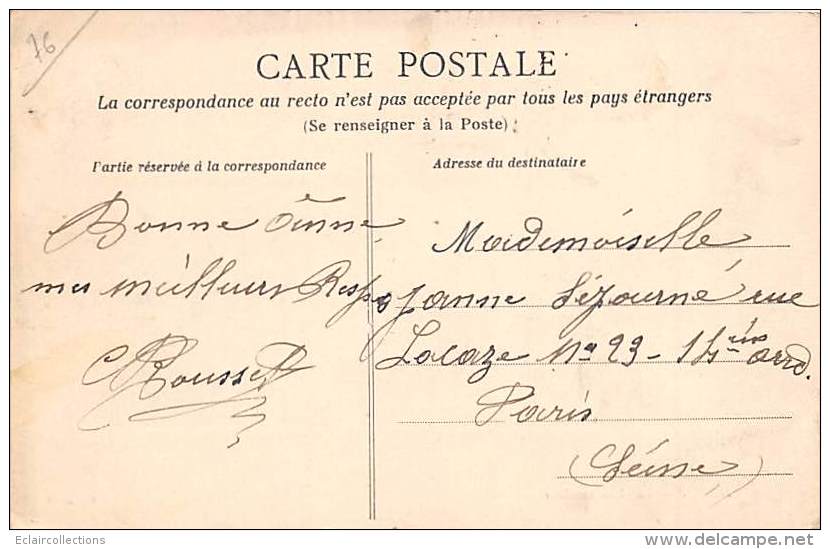 76
CARTE POSTALE
La correspondance au recto n'est pas acceptée par tous les pays étrangers
(Se renseigner à la Poste)
Partie réservée à la correspondance
Adresse du destinataire
Bonne Anne
mes meilleurs Resp
C Rousset
Mademoiselle
Janne Séjourné rue
Lacaze No 23 - 14 arrd.
Paris
(Seine)
Eclaircollections
www.delcampe.net